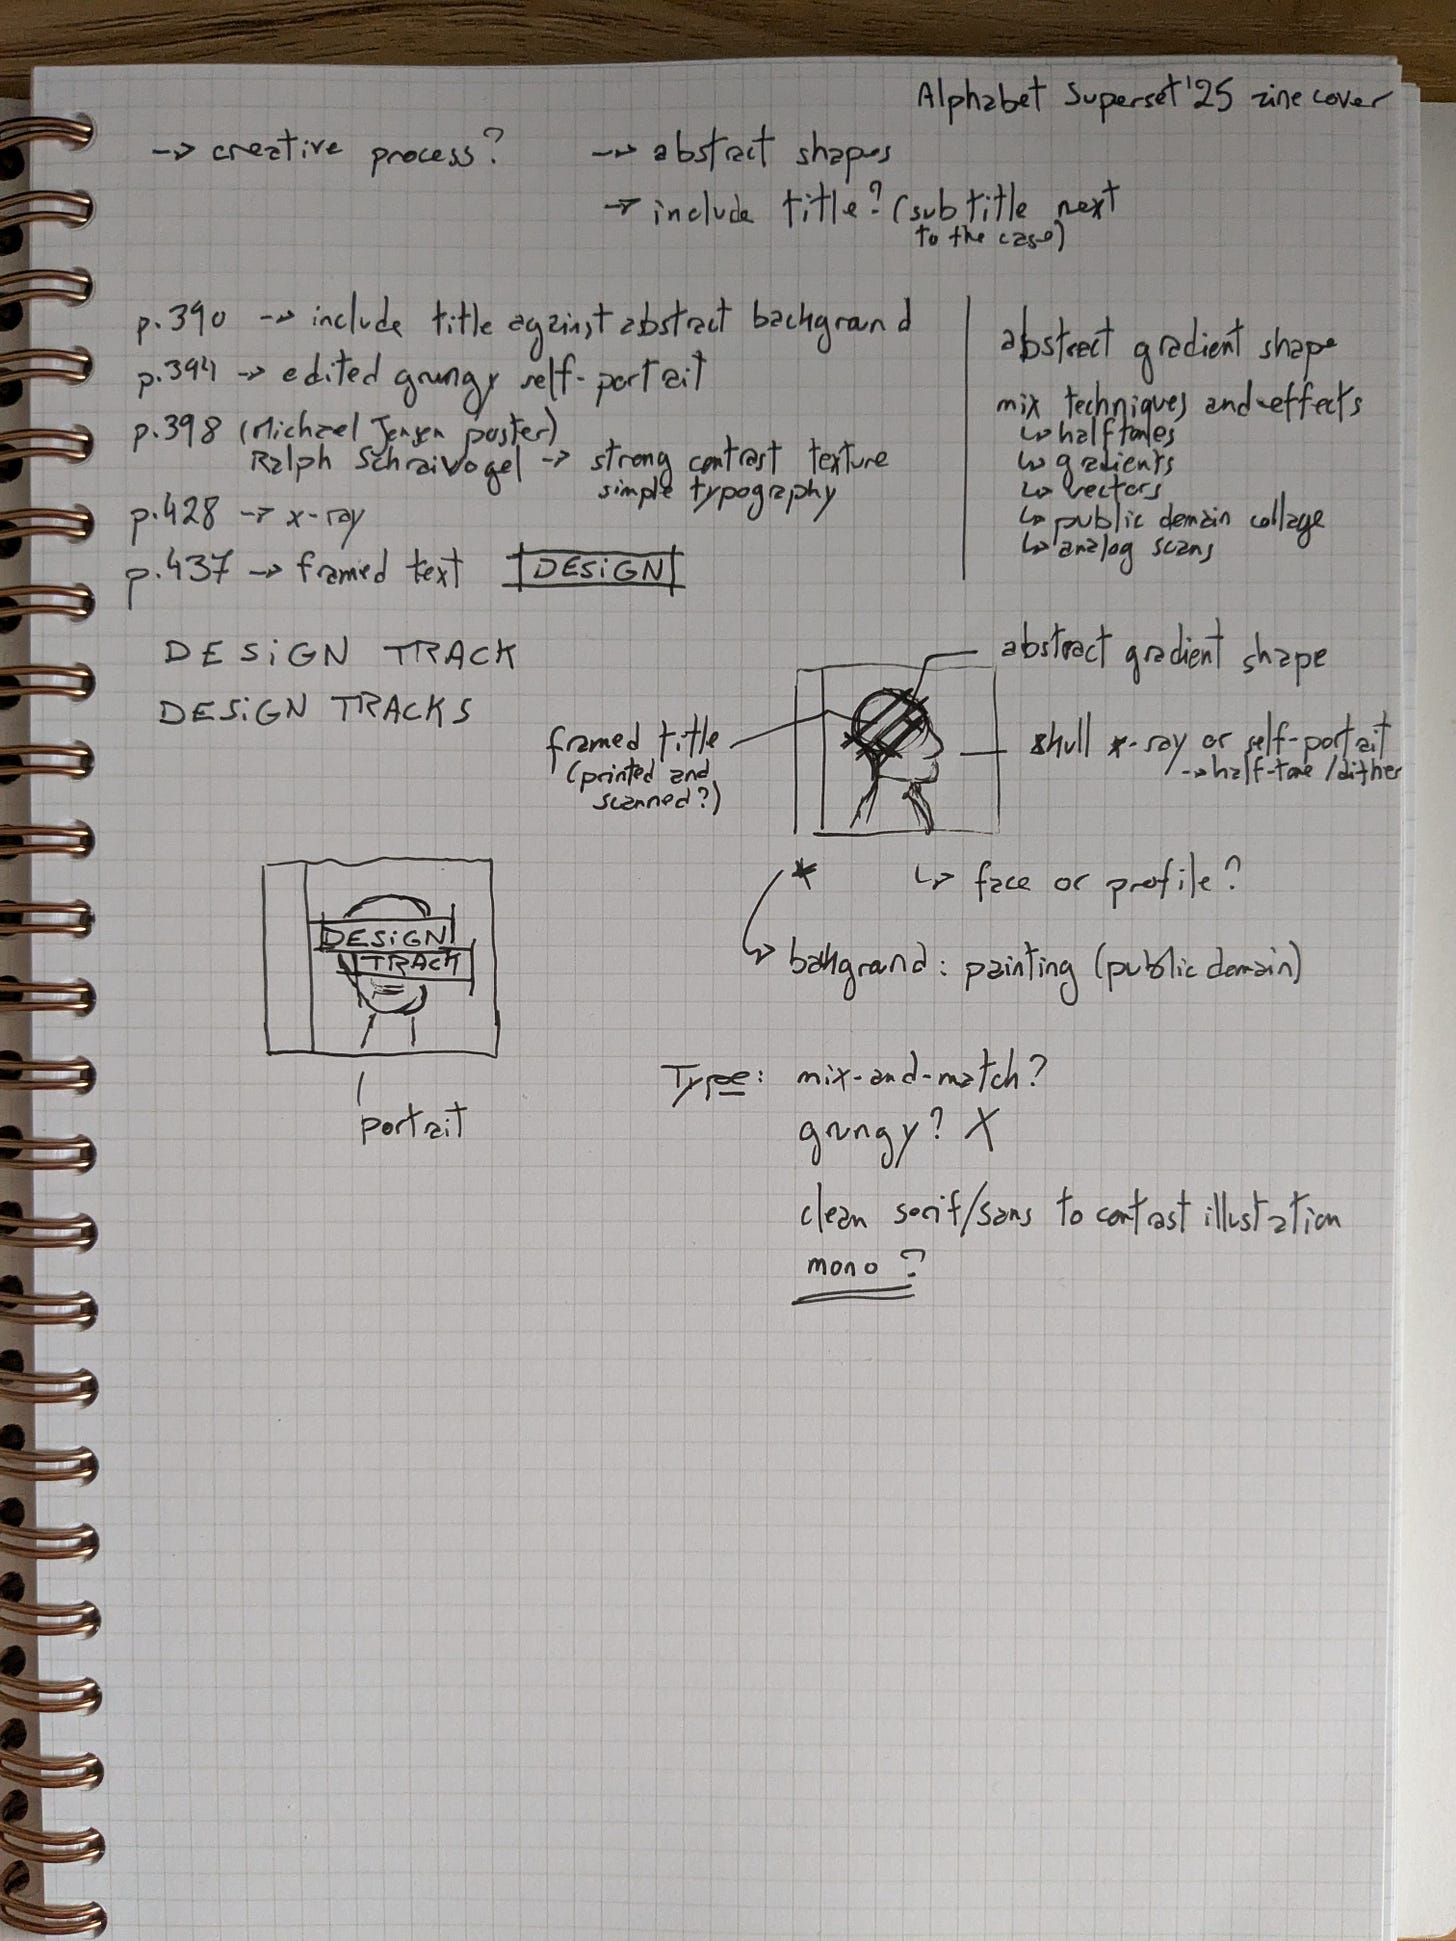 Alphabet Superset '25 zine cover
→ creative process?
→ abstract shapes
→ include title? (subtitle next
to the case)
p.390 → include title against abstract background
p.394 → edited grungy self-portrait
p.398 (Michael Jensen poster)
Ralph Schraivogel → strong contrast texture
simple typography
p.428 → x-ray
p.437 → framed text DESiGN
abstract gradient shape
mix techniques and effects
↳ halftones
↳ gradients
↳ vectors
↳ public domain collage
↳ analog scans
DESiGN TRACK
DESiGN TRACKS
abstract gradient shape
framed title
(printed and
scanned?)
skull x-ray or self-portrait
→ half-tone / dither
* ↳ face or profile?
DESiGN
TRACK
portrait
↳ background: painting (public domain)
Type: mix-and-match?
grungy? X
clean serif/sans to contrast illustration
mono?